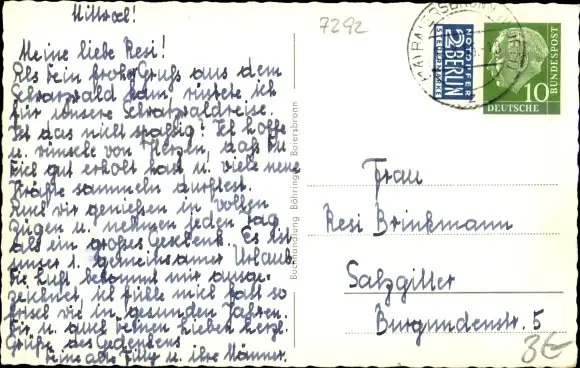 Mittwoch!
Meine liebe Resi!
Als Dein froher Gruß aus dem
Schwarzwald kam, rüstete ich
für unsere Schwarzwaldreise.
Ist das nicht spaßig? Ich hoffe
u. wünsche von Herzen, daß Du
Dich gut erholt hast u. viele neue
Kräfte sammeln durftest.
Auch wir genießen in vollen
Zügen u. nehmen jeden Tag
als ein großes Geschenk. Es ist
unser 1. gemeinsamer Urlaub.
Die Luft bekommt mir ausge-
zeichnet, ich fühle mich fast so
frisch wie in gesunden Jahren.
Dir u. auch Deinen Lieben herzl.
Grüße des Gedenkens
Deine alte Tilly u. ihre Männer.
Buchhandlung Böhringer, Baiersbronn
7292
BAIERSBRONN
NOTOPFER
2 BERLIN
STEUERMARKE
10
DEUTSCHE
BUNDESPOST
Frau
Resi Brinkmann
Salzgitter
Burgundenstr. 5
3€